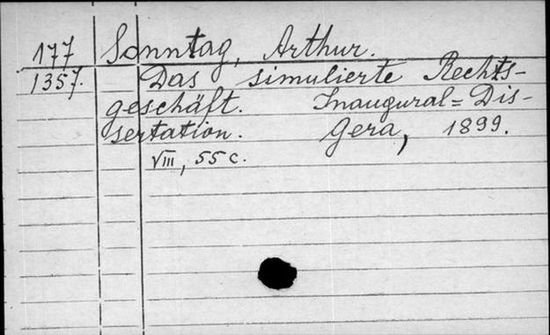 177 Sonntag, Arthur.
1357. Das simulierte Rechts-
geschäft. Inaugural=Dis-
sertation. Gera, 1899.
VIII, 55 c.